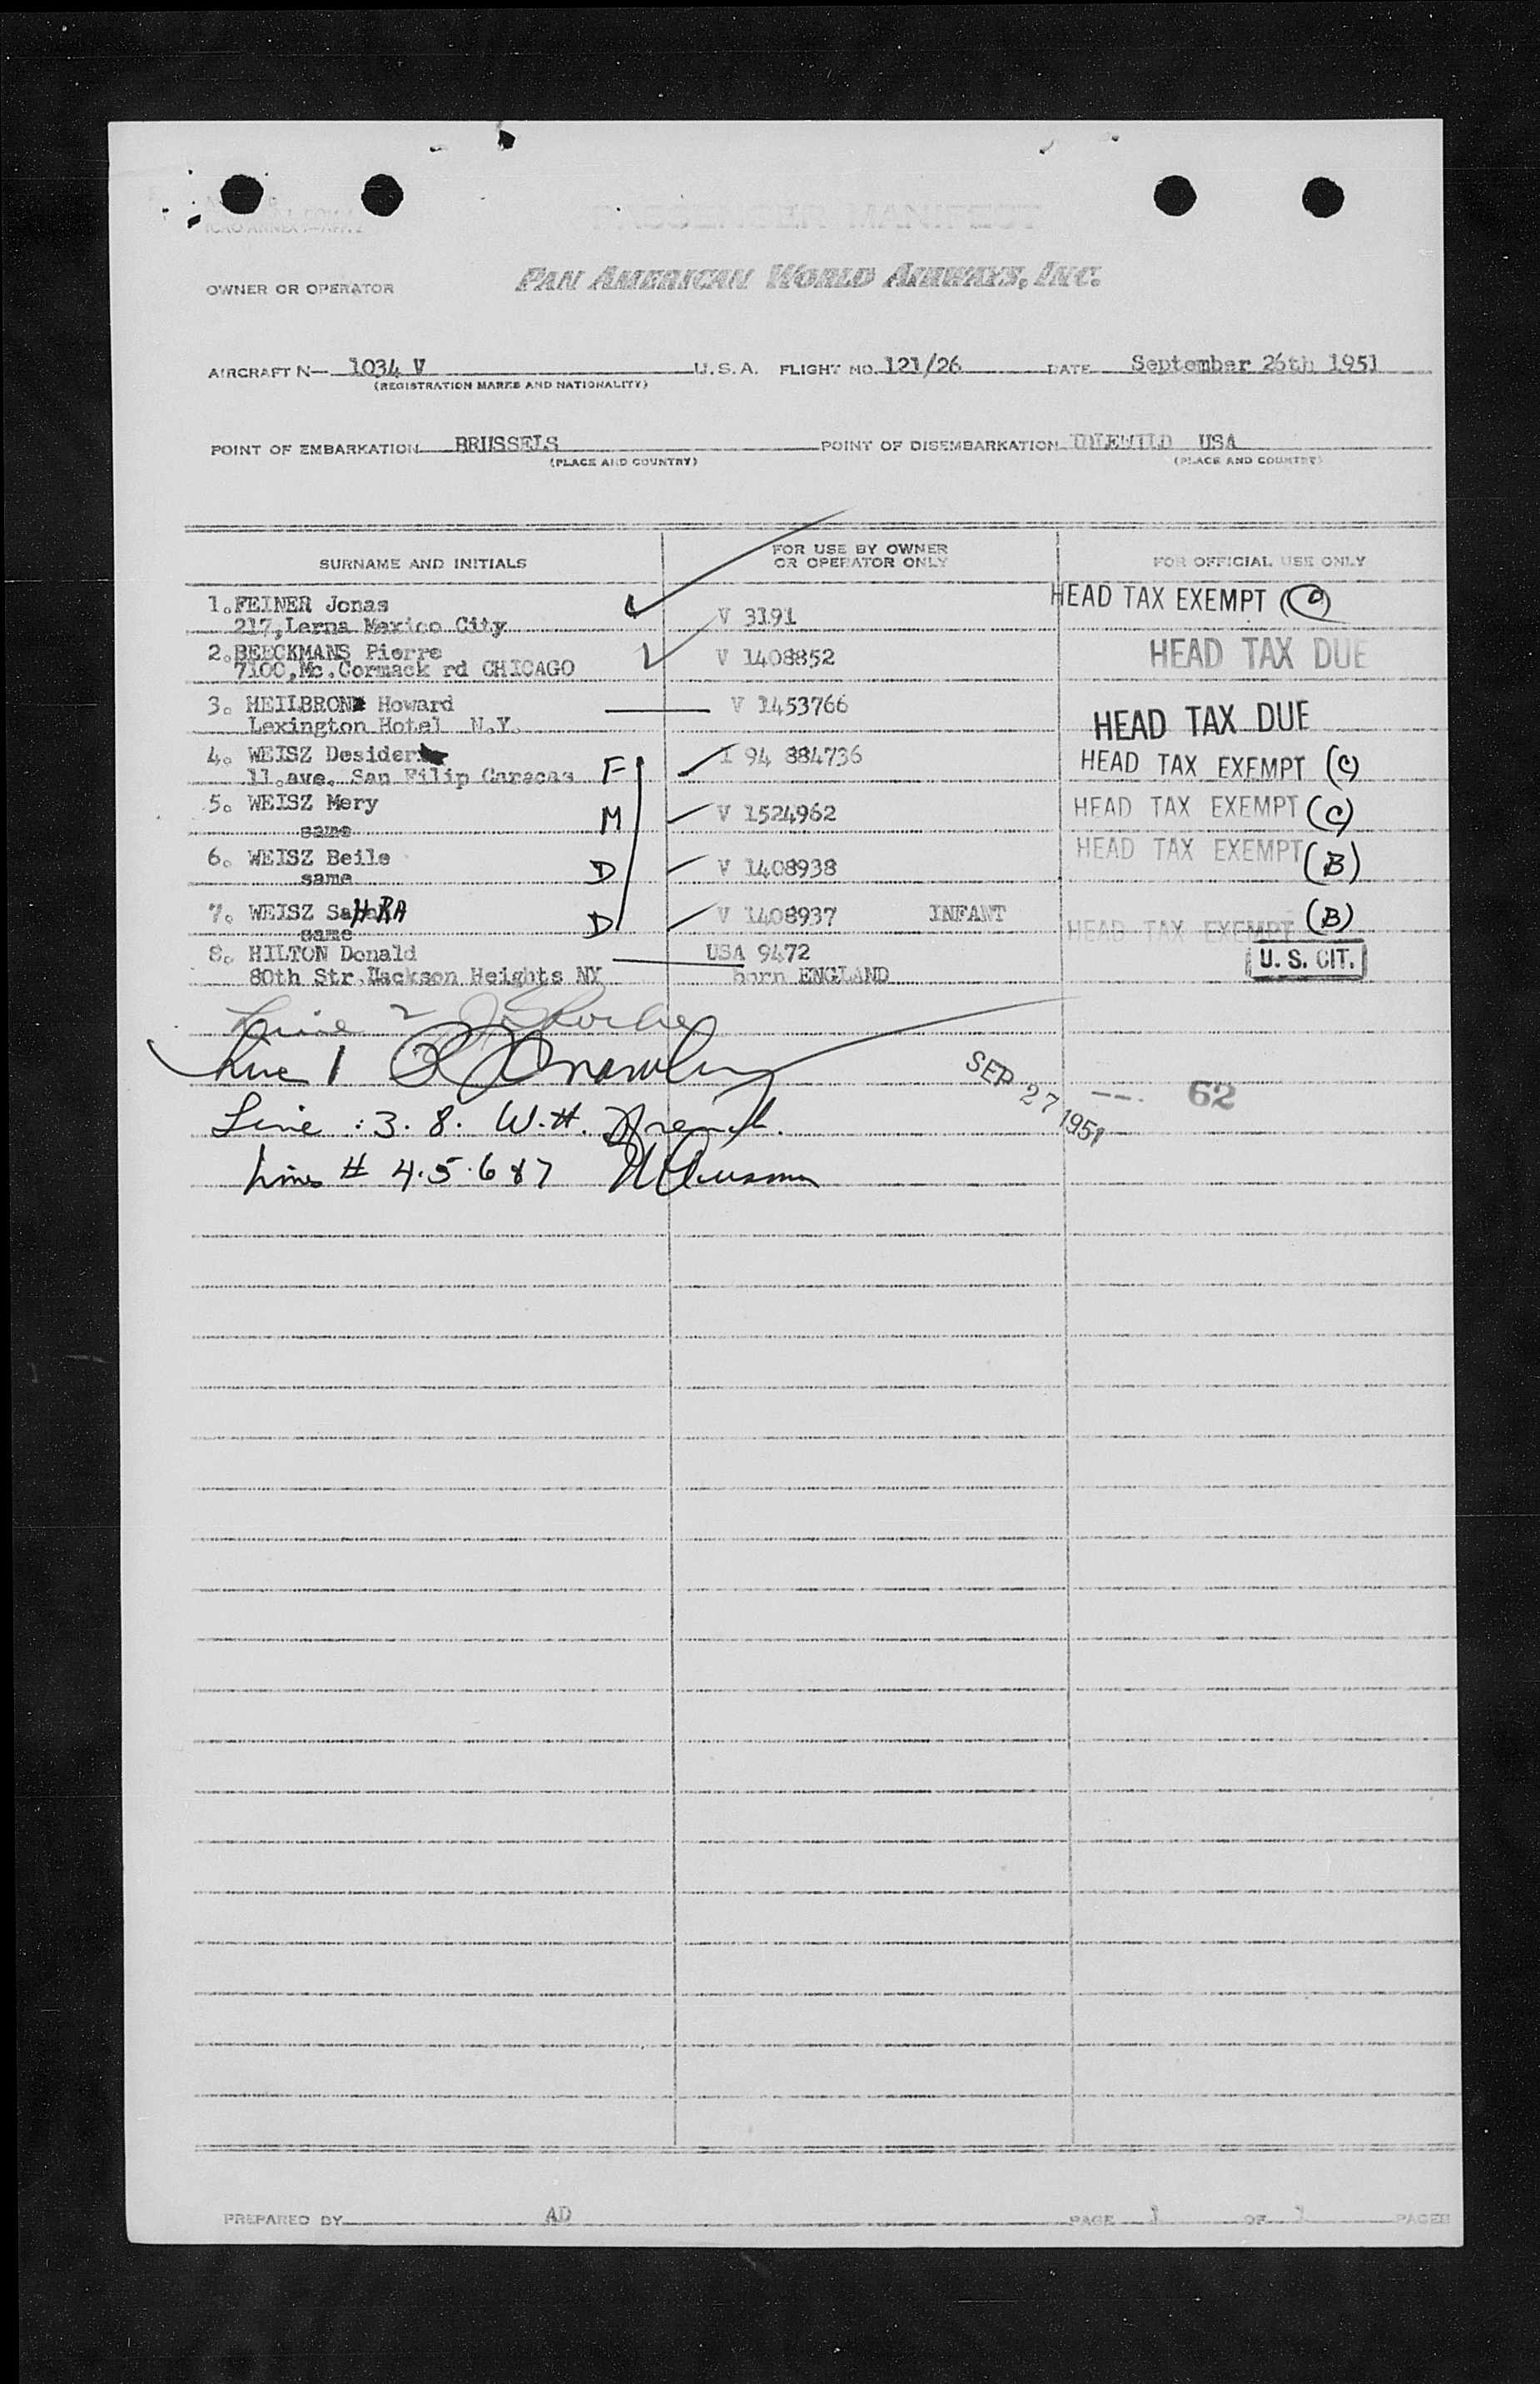 PASSENGER MANIFEST
ICAO ANNEX 9—APP. 2
OWNER OR OPERATOR PAN AMERICAN WORLD AIRWAYS, INC.
AIRCRAFT N— 1034 V U.S.A. FLIGHT NO. 121/26 DATE September 26th 1951
(REGISTRATION MARKS AND NATIONALITY)
POINT OF EMBARKATION BRUSSELS POINT OF DISEMBARKATION IDLEWILD USA
(PLACE AND COUNTRY) (PLACE AND COUNTRY)
SURNAME AND INITIALS FOR USE BY OWNER OR OPERATOR ONLY FOR OFFICIAL USE ONLY
1. FEINER Jonas V 3191 HEAD TAX EXEMPT (C)
217, Lerna Mexico City
2. BEECKMANS Pierre V 1408852 HEAD TAX DUE
7100, Mc. Cormack rd CHICAGO
3. HEILBRON Howard V 1453766 HEAD TAX DUE
Lexington Hotel N.Y.
4. WEISZ Desider F I 94 884736 HEAD TAX EXEMPT (C)
11. ave. San Filip Caracas
5. WEISZ Mery M V 1524962 HEAD TAX EXEMPT (C)
same
6. WEISZ Beile D V 1408938 HEAD TAX EXEMPT (B)
same
7. WEISZ SaHRA D V 1408937 INFANT HEAD TAX EXEMPT (B)
same
8. HILTON Donald USA 9472 U. S. CIT.
80th Str. Jackson Heights NY born ENGLAND
Line 2
Line 1
SEP 27 1951 62
Line : 3. 8. W. H. French.
Lines # 4.5.6 & 7
PREPARED BY AD PAGE 1 OF 1 PAGES